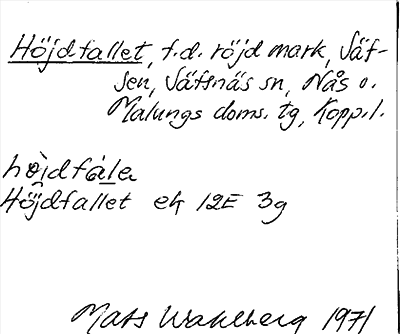 Höjdfallet, f.d. röjd mark, Säf-
sen, Säfsnäs sn, Nås o.
Malungs doms. tg, Kopp. l.
höjdfàla
Höjdfallet ek 12E 3g
Mats Wahlberg 1971